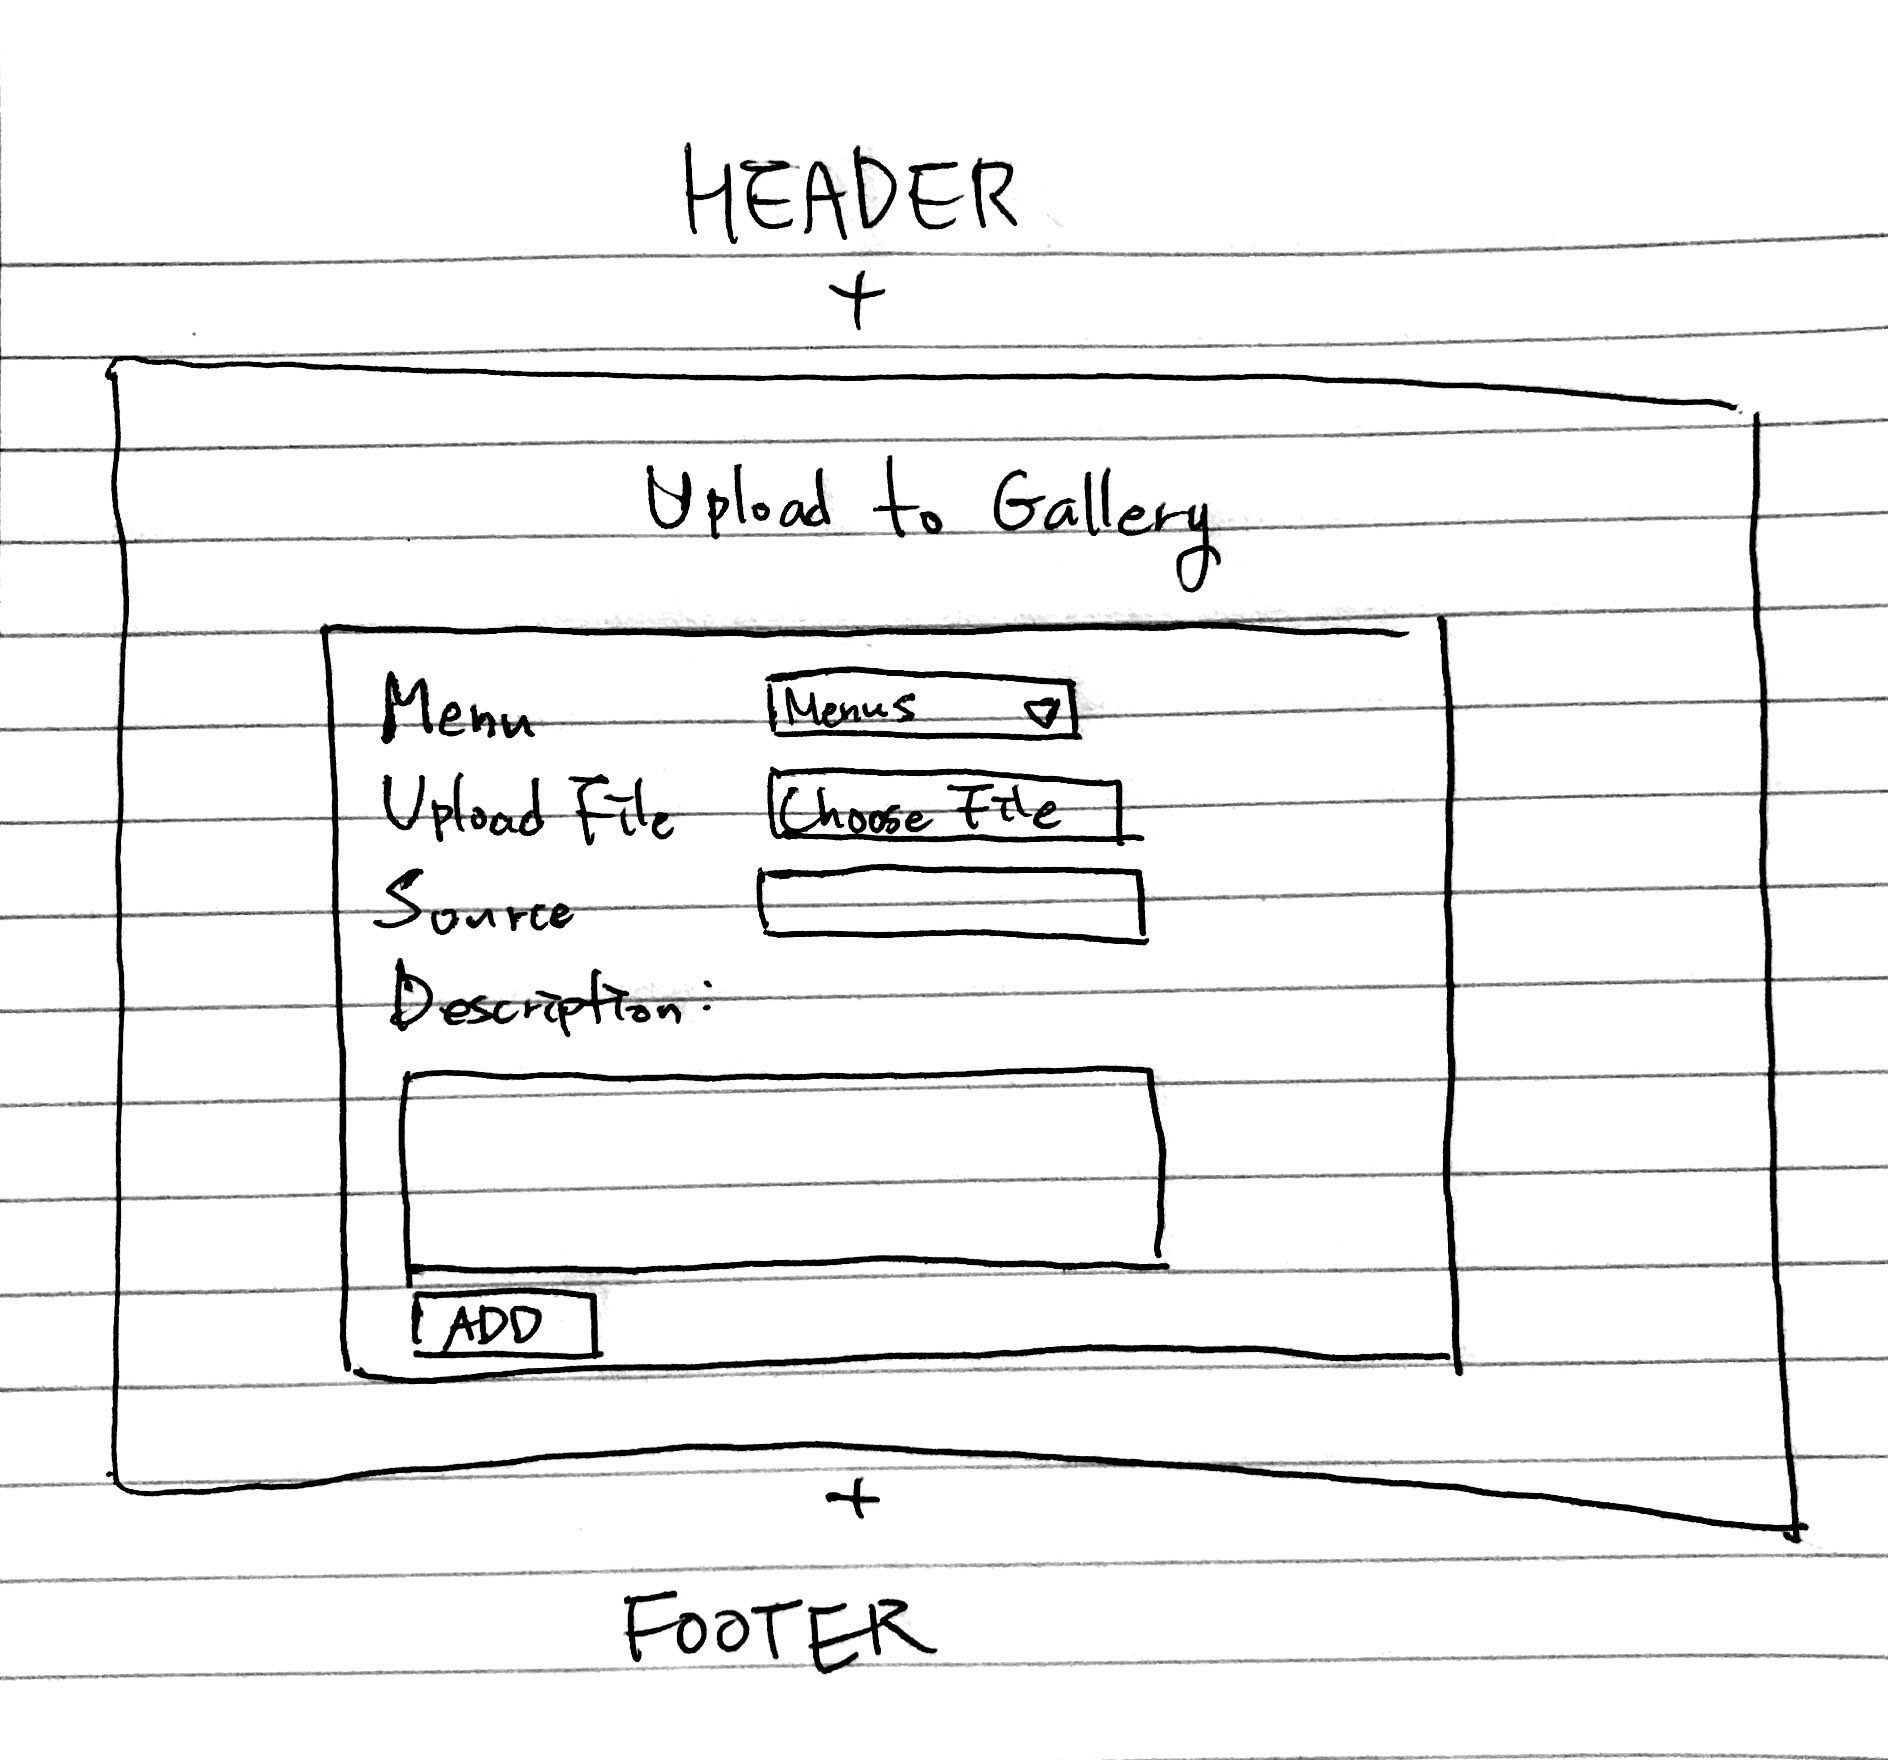 HEADER
+
Upload to Gallery
Menu Menus
Upload File Choose File
Source
Description:
ADD
+
FOOTER